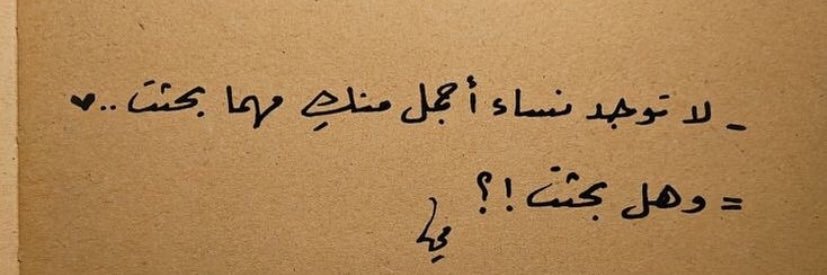 - لا توجد نساء أجمل منكِ مهما بحثت ..♥
= وهل بحثت !؟